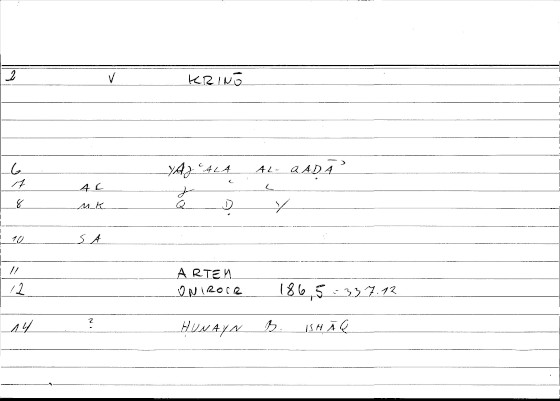 2 V KRINŌ
6 YAǦʿALA AL-QAḌĀʾ
7 AC ǧ ʿ L
8 MK Q Ḍ Y
10 SA
11 ARTEM
12 ONIROCR 186,5 = 337.12
14 ? HUNAYN B. ISHĀQ